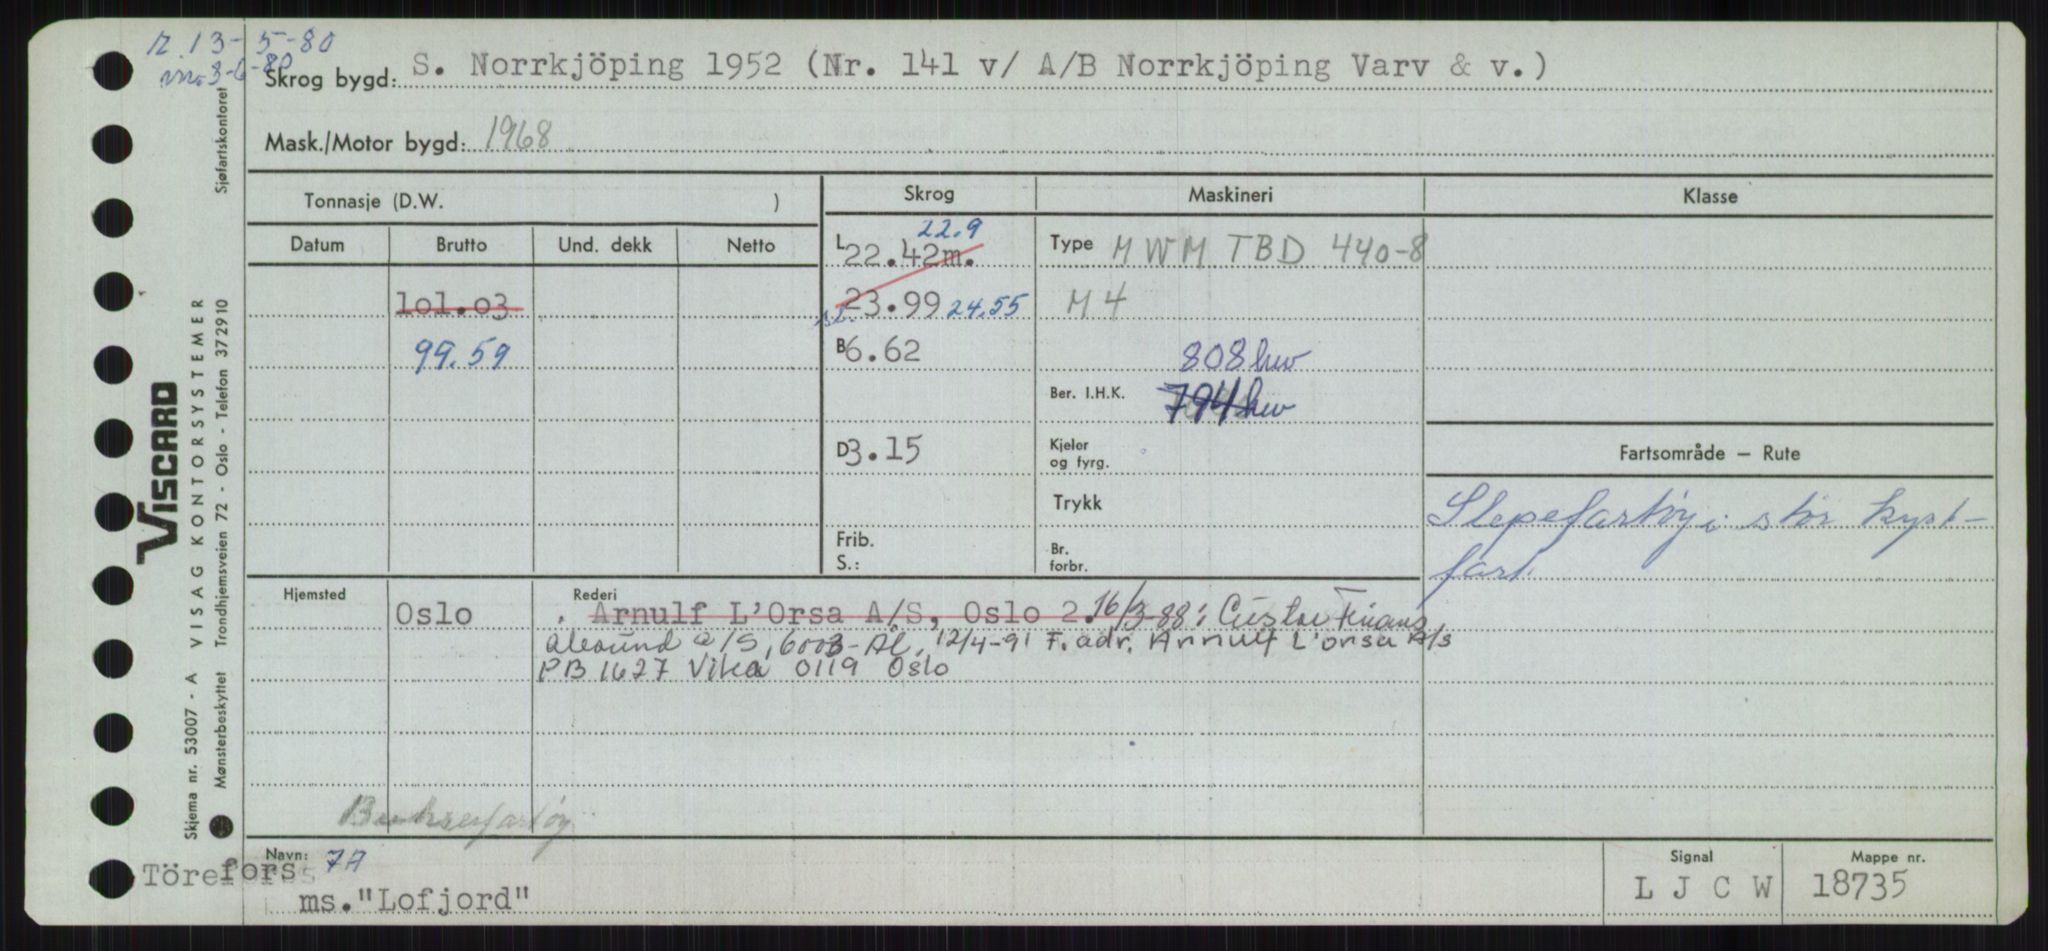 12.13-5-80
3-6-80
Skrog bygd: S. Norrkjöping 1952 (Nr. 141 v/ A/B Norrkjöping Varv & v.)
Mask./Motor bygd: 1968
Tonnasje (D.W. )
Skrog
Maskineri
Klasse
Datum
Brutto
Und. dekk
Netto
22.9
L 22.42m.
Type MWM TBD 440-8
101.03
23.99 24.55
M 4
99.59
B 6.62
808 hw
Ber. I.H.K. 794 hw
D 3.15
Kjeler og fyrg.
Fartsområde – Rute
Trykk
Slepefartøy i stor kyst-
fart.
Frib. S.:
Br. forbr.
Hjemsted
Oslo
Rederi
. Arnulf L'Orsa A/S, Oslo 2. 16/3-88: Gustav Finans
Ålesund a/S, 6003-Ål. 12/4-91 F. adr. Arnulf L'orsa A/s
PB 1627 Vika 0119 Oslo
Bukserfartøy
Navn: 7A
Törefors
ms."Lofjord"
Signal
L J C W
Mappe nr.
18735
VISCARD
Skjema nr. 53007 - A VISAG KONTORSYSTEMER
Mønsterbeskyttet Trondhjemsveien 72 - Oslo - Telefon 372910
Sjøfartskontoret